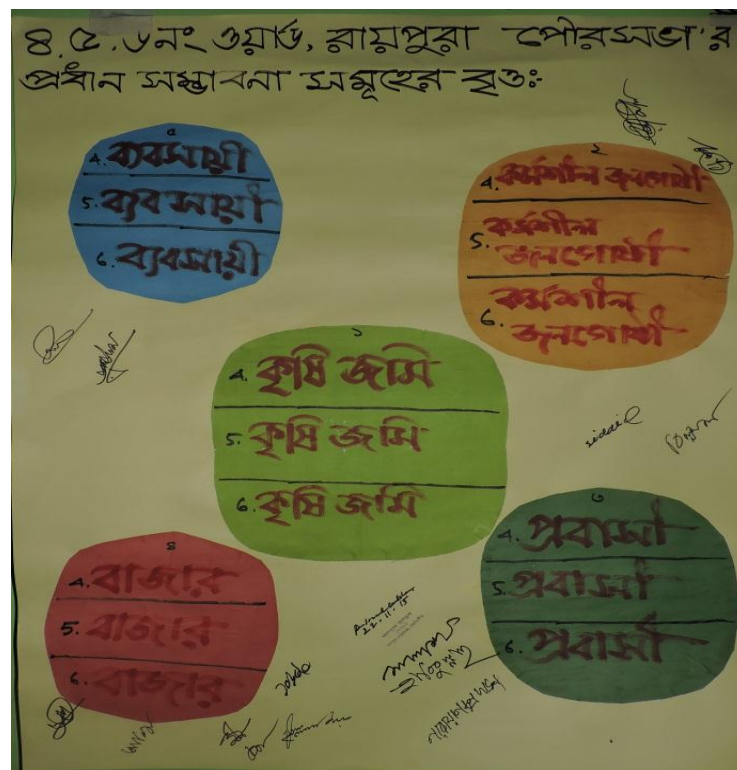 ৪.৫.৬নং ওয়ার্ড, রায়পুরা পৌরসভা'র
প্রধান সম্ভাবনা সমূহের বৃত্তঃ
৫
4. ব্যবসায়ী
5. ব্যবসায়ী
6. ব্যবসায়ী
২
4. কর্মশীল জনগোষ্ঠী
5. কর্মশীল
জনগোষ্ঠী
6. কর্মশীল
জনগোষ্ঠী
১
4. কৃষি জমি
5. কৃষি জমি
6. কৃষি জমি
siddiq
৪
4. বাজার
5. বাজার
6. বাজার
৩
4. প্রবাসী
5. প্রবাসী
6. প্রবাসী
22.11.15